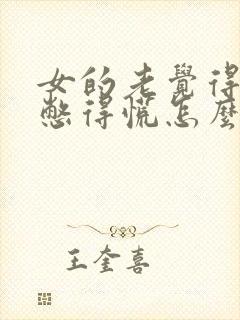 女的老覺得
憋得慌怎麼
王奎喜